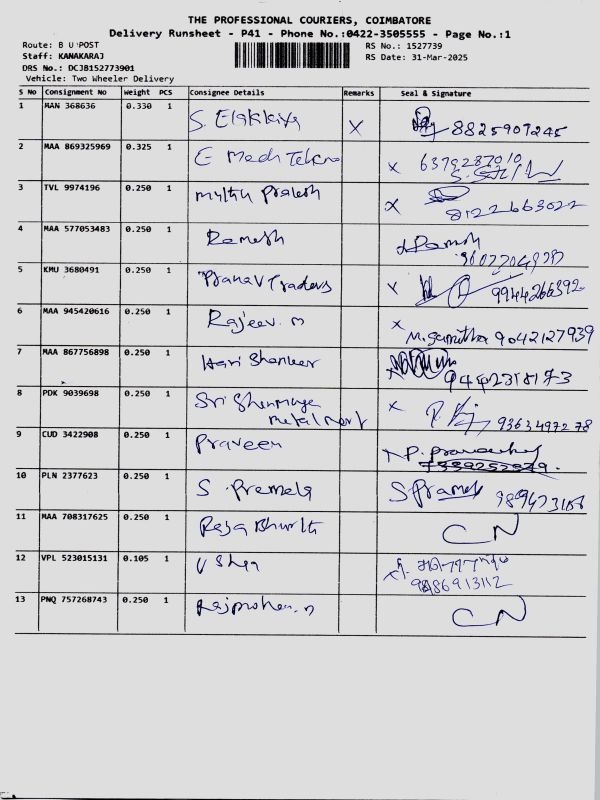 THE PROFESSIONAL COURIERS, COIMBATORE
Delivery Runsheet - P41 - Phone No.:0422-3505555 - Page No.:1
Route: B U POST
RS No.: 1527739
Staff: KANAKARAJ
RS Date: 31-Mar-2025
DRS No.: DCJB152773901
Vehicle: Two Wheeler Delivery
S No Consignment No Weight PCS Consignee Details Remarks Seal & Signature
1 MAN 368636 0.330 1 S. Elakkiya X 8825907245
2 MAA 869325969 0.325 1 E Mech Tekno x 6379287010
3 TVL 9974196 0.250 1 Muthu Prakash x 8122663022
4 MAA 577053483 0.250 1 Ramesh
5 KMU 3680491 0.250 1 Pranav Traders x 9944266392
6 MAA 945420616 0.250 1 Rajeev. m x M. Sumitha 9042127939
7 MAA 867756898 0.250 1 Hari Shankar 9442318173
8 PDK 9039698 0.250 1 Sri Shanmuga x
Metal Mart 9363497278
9 CUD 3422908 0.250 1 Praveen P.
10 PLN 2377623 0.250 1 S. Premela
11 MAA 708317625 0.250 1 Raja CN
12 VPL 523015131 0.105 1 Usha
13 PNQ 757268743 0.250 1 Rajmohan. n CN